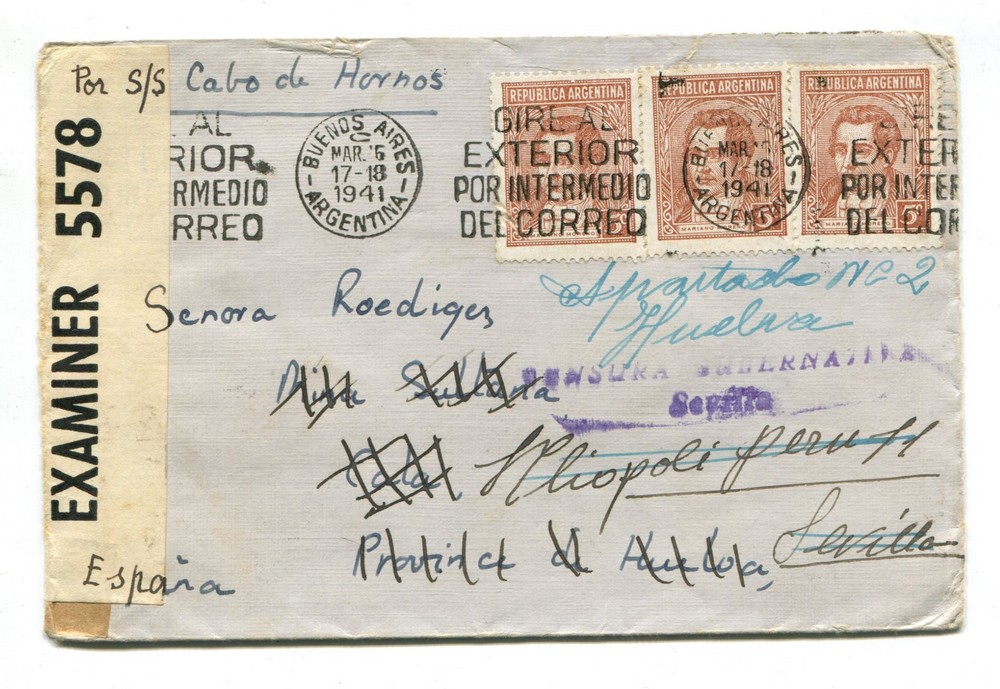 Por S/S Cabo de Hornos
EXAMINER 5578
REPUBLICA ARGENTINA
REPUBLICA ARGENTINA
REPUBLICA ARGENTINA
E AL
RIOR
RMEDIO
RREO
BUENOS AIRES
MAR. 6
17-18
1941
ARGENTINA
GIRE AL
EXTERIOR
POR INTERMEDIO
DEL CORREO
BUENOS AIRES
MAR 6
17-18
1941
ARGENTINA
EXTER
POR INTER
DEL COR
MARIANO
Apartado Nº 2
Huelva
Senora Roediger
CENSURA GUBERNATIVA
Sevilla
Cala,
Hliopoli Peru 11
Sevilla
Provincia de Huelva,
España